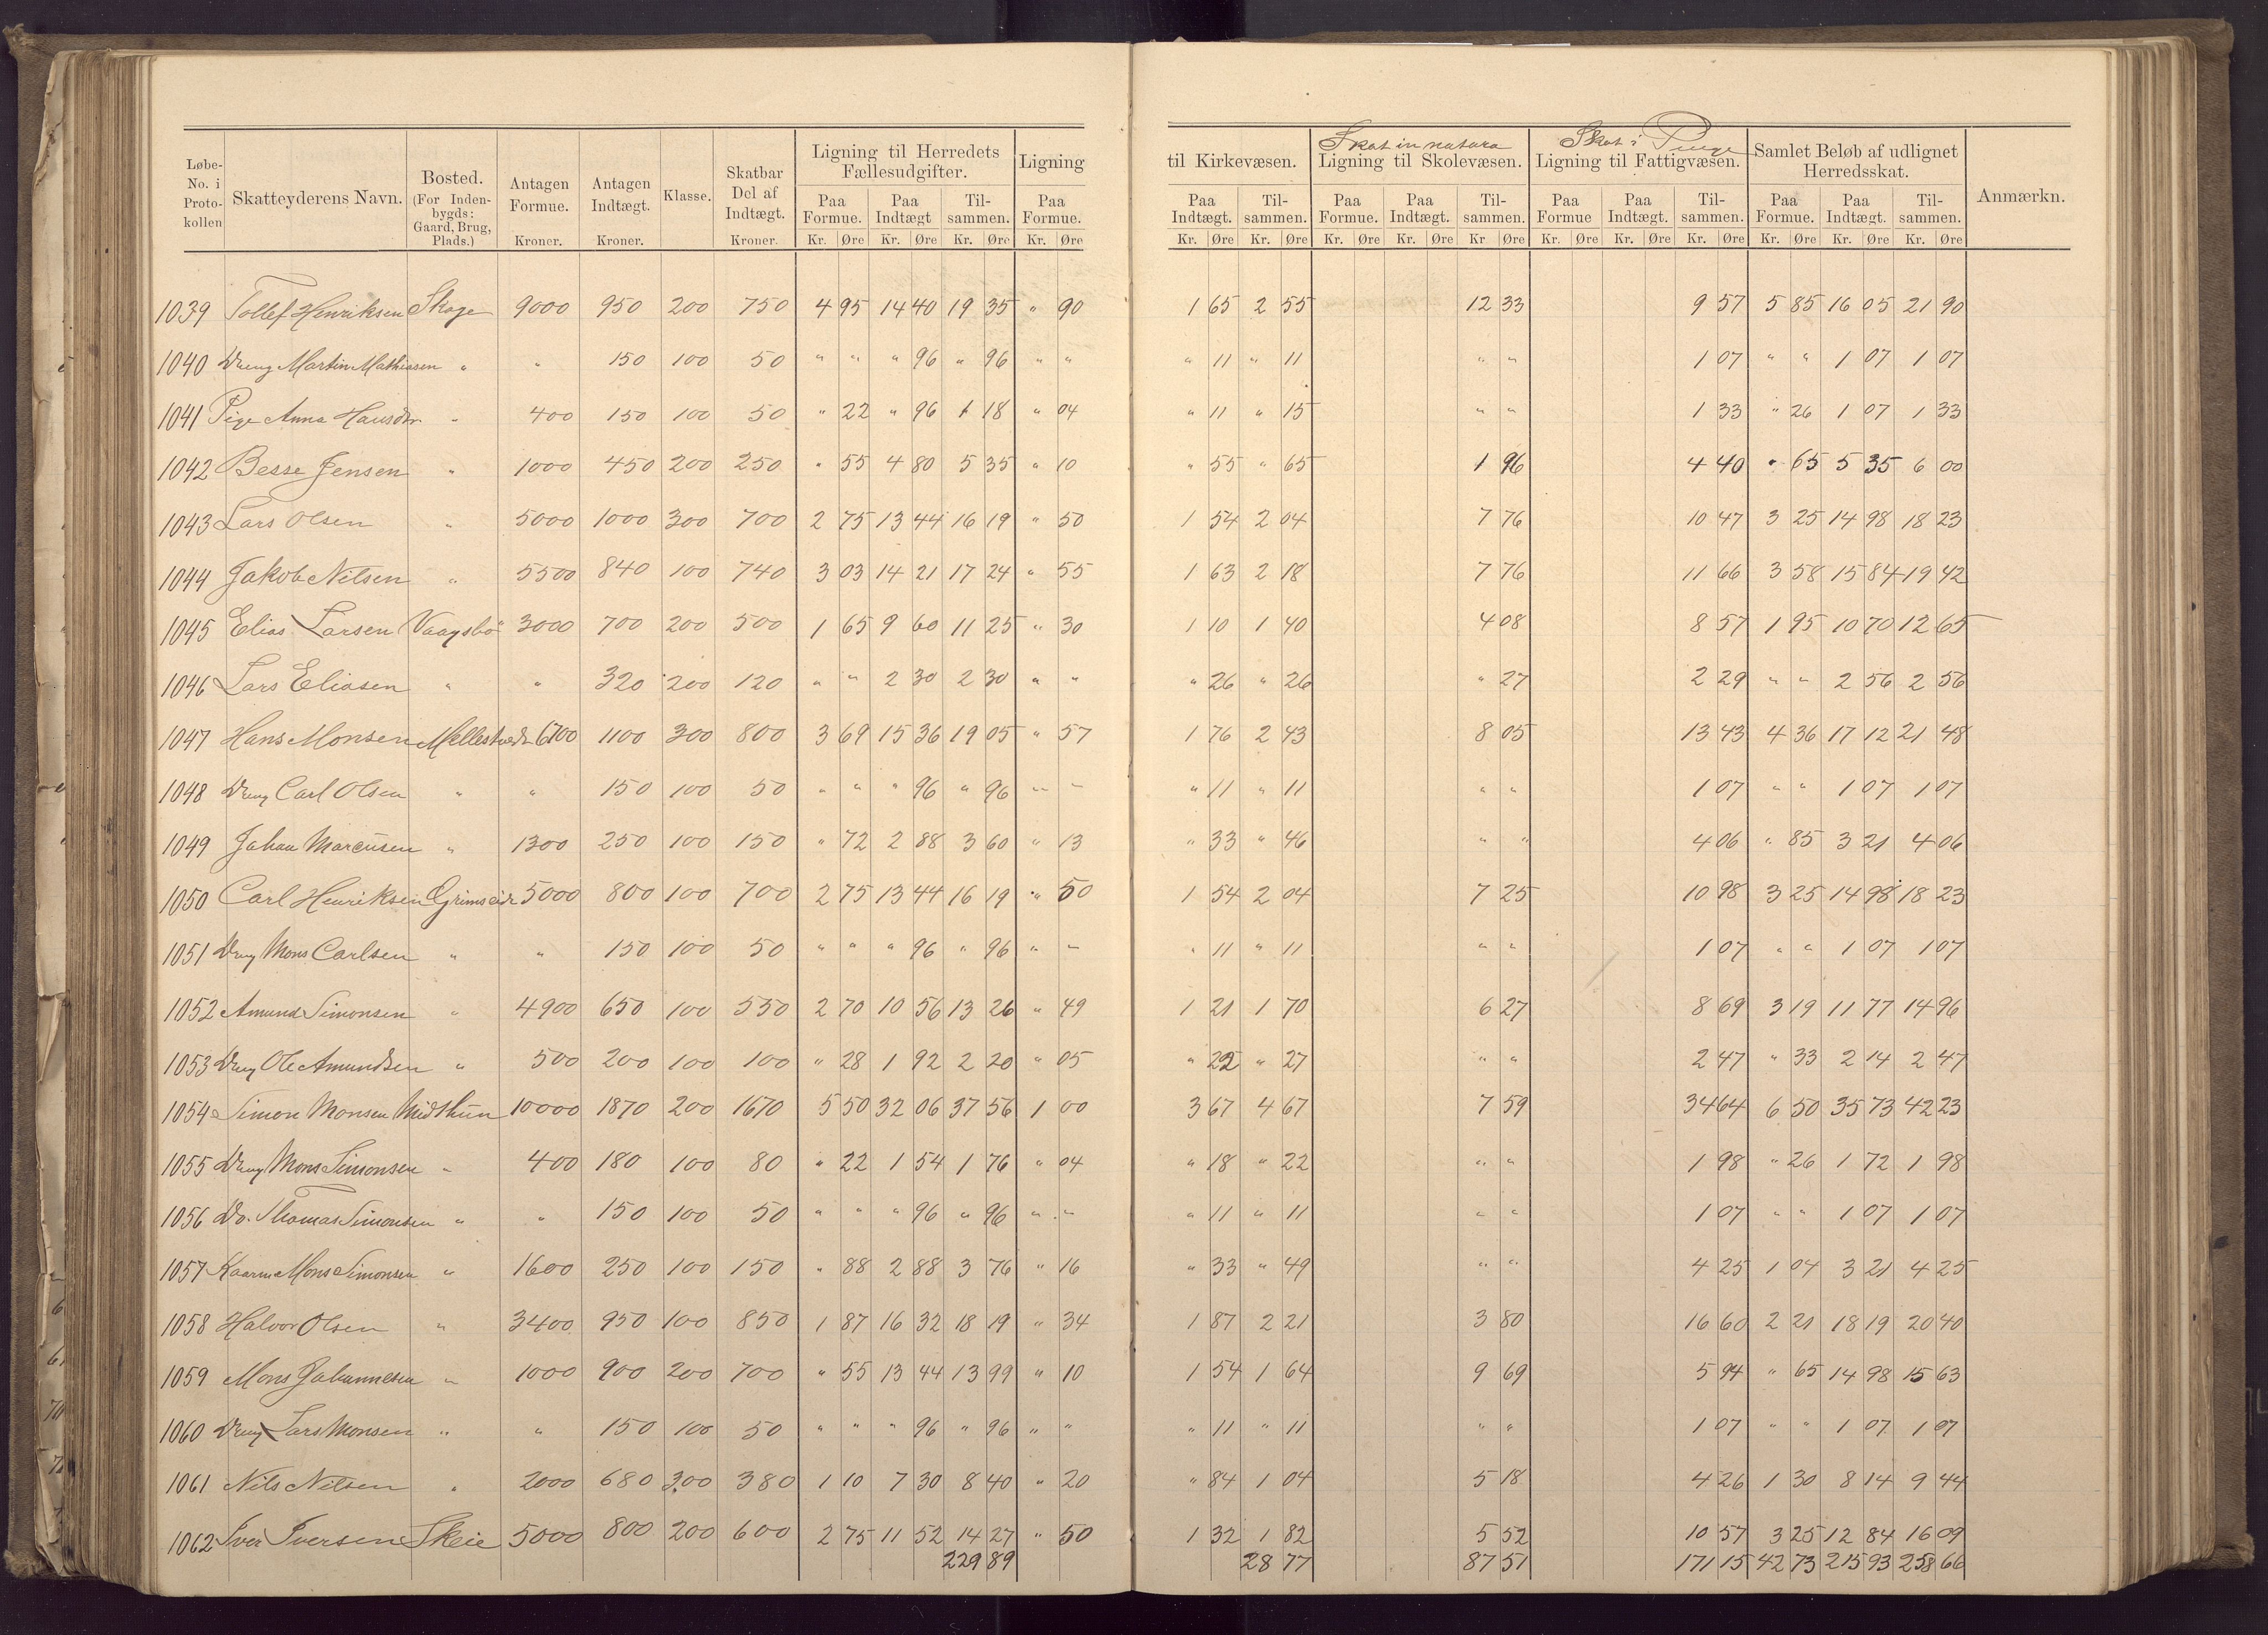 Skat in natura Skat i Penge
Løbe-No. i Protokollen Skatteyderens Navn. Bosted. (For Indenbygds: Gaard, Brug, Plads.) Antagen Formue. Antagen Indtægt. Klasse. Skatbar Del af Indtægt. Ligning til Herredets Fællesudgifter. Ligning til Kirkevæsen. Ligning til Skolevæsen. Ligning til Fattigvæsen. Samlet Beløb af udlignet Herredsskat. Anmærkn.
Paa Formue. Paa Indtægt Tilsammen. Paa Formue. Paa Indtægt. Tilsammen. Paa Formue. Paa Indtægt. Tilsammen. Paa Formue Paa Indtægt. Tilsammen. Paa Formue. Paa Indtægt. Tilsammen.
Kroner. Kroner. Kroner. Kr. Øre Kr. Øre Kr. Øre Kr. Øre Kr. Øre Kr. Øre Kr. Øre Kr. Øre Kr Øre Kr. Øre Kr. Øre Kr. Øre Kr. Øre Kr. Øre Kr. Øre
1039 Tollef Henriksen Skage 9000 950 200 750 4 95 14 40 19 35 " 90 1 65 2 55 12 33 9 57 5 85 16 05 21 90
1040 Dreng Martin Mathiasen " " 150 100 50 " " " 96 " 96 " " " 11 " 11 " " 1 07 " " 1 07 1 07
1041 Pige Anna Hansdtr. " 400 150 100 50 " 22 " 96 1 18 " 04 " 11 " 15 " " 1 33 " 26 1 07 1 33
1042 Besse Jensen " 1000 450 200 250 " 55 4 80 5 35 " 10 " 55 " 65 1 96 4 40 " 65 5 35 6 00
1043 Lars Olsen " 5000 1000 300 700 2 75 13 44 16 19 " 50 1 54 2 04 7 76 10 47 3 25 14 98 18 23
1044 Jakob Nilsen " 5500 840 100 740 3 03 14 21 17 24 " 55 1 63 2 18 7 76 11 66 3 58 15 84 19 42
1045 Elias Larsen Vaagsbö 3000 700 200 500 1 65 9 60 11 25 " 30 1 10 1 40 4 08 8 57 1 95 10 70 12 65
1046 Lars Eliasen " " 320 200 120 " " 2 30 2 30 " " " 26 " 26 " 27 2 29 " " 2 56 2 56
1047 Hans Monsen 6700 1100 300 800 3 69 15 36 19 05 " 57 1 76 2 43 8 05 13 43 4 36 17 12 21 48
1048 Dreng Carl Olsen " " 150 100 50 " " " 96 " 96 " " " 11 " 11 " " 1 07 " " 1 07 1 07
1049 Johan Marcusen " 1300 250 100 150 " 72 2 88 3 60 " 13 " 33 " 46 " " 4 06 " 85 3 21 4 06
1050 Carl Henriksen Grimseid 5000 800 100 700 2 75 13 44 16 19 " 50 1 54 2 04 7 25 10 98 3 25 14 98 18 23
1051 Dreng Mons Carlsen " " 150 100 50 " " " 96 " 96 " " " 11 " 11 " " 1 07 " " 1 07 1 07
1052 Amund Simonsen " 4900 650 100 550 2 70 10 56 13 26 " 49 1 21 1 70 6 27 8 69 3 19 11 77 14 96
1053 Dreng Ole Amundsen " 500 200 100 100 " 28 1 92 2 20 " 05 " 22 " 27 " " 2 47 " 33 2 14 2 47
1054 Simon Monsen Midthun 10000 1870 200 1670 5 50 32 06 37 56 1 00 3 67 4 67 7 59 34 64 6 50 35 73 42 23
1055 Dreng Mons Simonsen " 400 180 100 80 " 22 1 54 1 76 " 04 " 18 " 22 " " 1 98 " 26 1 72 1 98
1056 Do. Thomas Simonsen " " 150 100 50 " " " 96 " 96 " " " 11 " 11 " " 1 07 " " 1 07 1 07
1057 Kaarm. Mons Simonsen " 1600 250 100 150 " 88 2 88 3 76 " 16 " 33 " 49 " " 4 25 1 04 3 21 4 25
1058 Halvor Olsen " 3400 950 100 850 1 87 16 32 18 19 " 34 1 87 2 21 3 80 16 60 2 21 18 19 20 40
1059 Mons Johannesen " 1000 900 200 700 " 55 13 44 13 99 " 10 1 54 1 64 9 69 5 94 " 65 14 98 15 63
1060 Dreng Lars Monsen " " 150 100 50 " " " 96 " 96 " " " 11 " 11 " " 1 07 " " 1 07 1 07
1061 Nils Nilsen " 2000 680 300 380 1 10 7 30 8 40 " 20 " 84 1 04 5 18 4 26 1 30 8 14 9 44
1062 Iver Iversen Skeie 5000 800 200 600 2 75 11 52 14 27 " 50 1 32 1 82 5 52 10 57 3 25 12 84 16 09
229 89 28 77 87 51 171 15 42 73 215 93 258 66